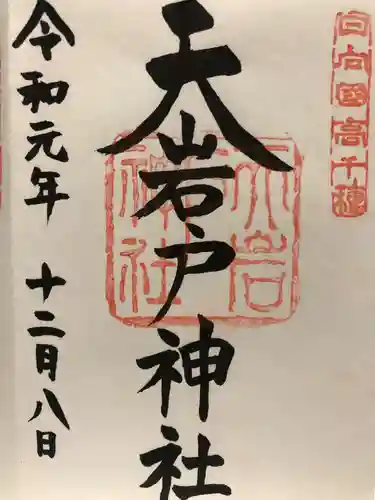 日向國高千穂
天岩戸神社
天岩神社
令和元年 十二月八日